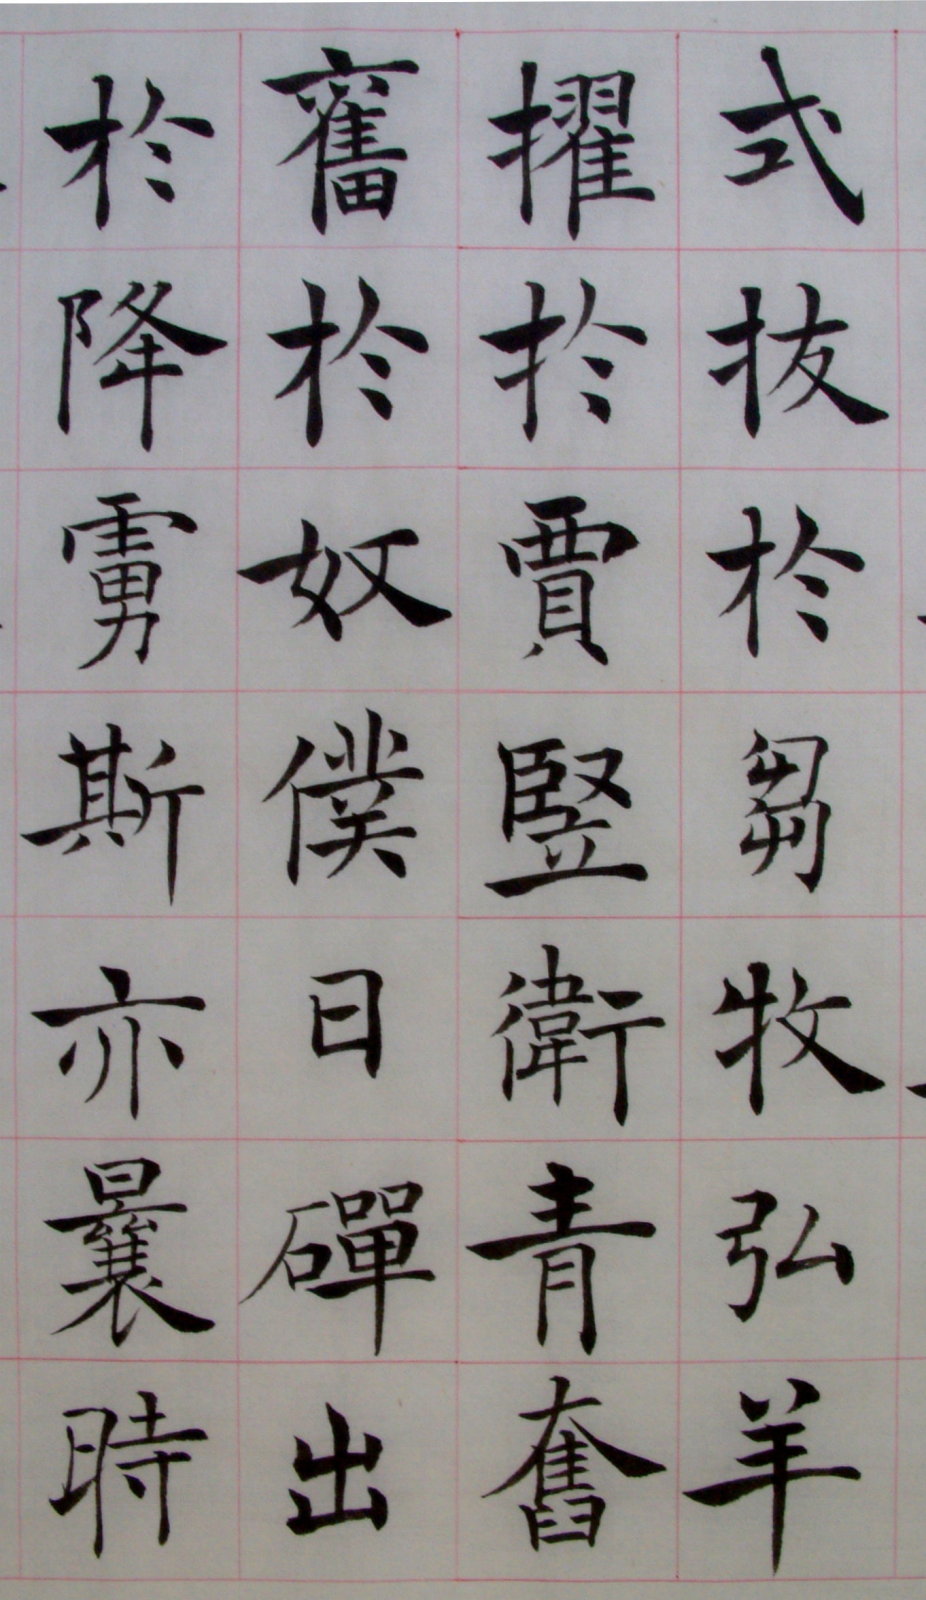 式拔於芻牧弘羊
擢於賈豎衛青奮
奮於奴僕日磾出
於降虜斯亦曩時